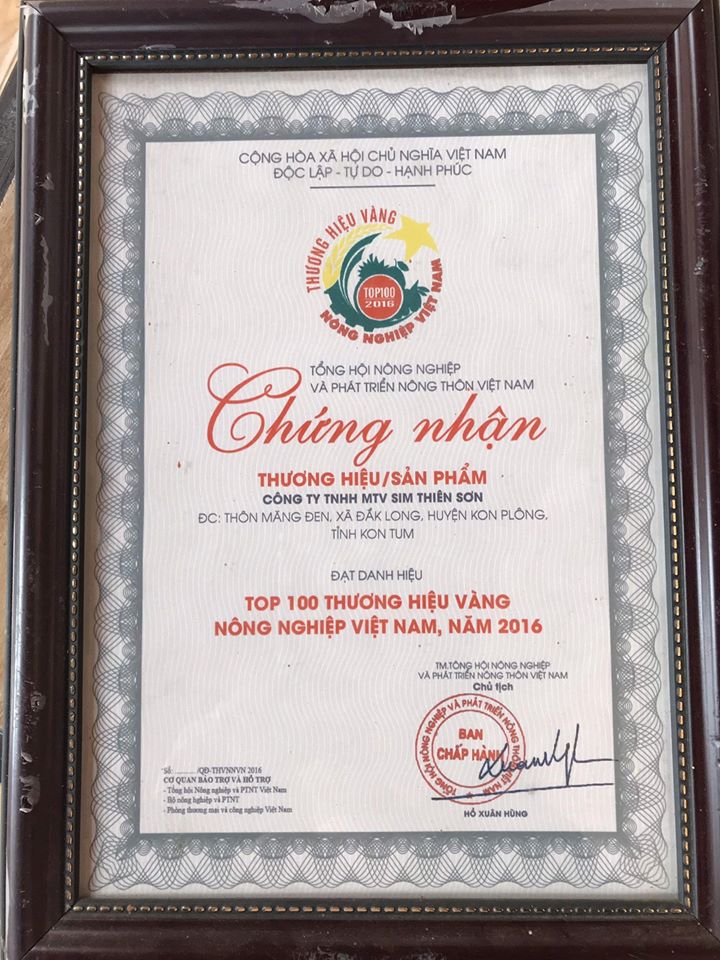 CỘNG HÒA XÃ HỘI CHỦ NGHĨA VIỆT NAM
ĐỘC LẬP - TỰ DO - HẠNH PHÚC
THƯƠNG HIỆU VÀNG
TOP100
2016
NÔNG NGHIỆP VIỆT NAM
TỔNG HỘI NÔNG NGHIỆP
VÀ PHÁT TRIỂN NÔNG THÔN VIỆT NAM
Chứng nhận
THƯƠNG HIỆU/SẢN PHẨM
CÔNG TY TNHH MTV SIM THIÊN SƠN
ĐC: THÔN MĂNG ĐEN, XÃ ĐẮK LONG, HUYỆN KON PLÔNG,
TỈNH KON TUM
ĐẠT DANH HIỆU
TOP 100 THƯƠNG HIỆU VÀNG
NÔNG NGHIỆP VIỆT NAM, NĂM 2016
TM.TỔNG HỘI NÔNG NGHIỆP
VÀ PHÁT TRIỂN NÔNG THÔN VIỆT NAM
Chủ tịch
TỔNG HỘI NÔNG NGHIỆP VÀ PHÁT TRIỂN NÔNG THÔN VIỆT NAM
BAN
CHẤP HÀNH
HỒ XUÂN HÙNG
Số: ........../QĐ-THVNNVN 2016
CƠ QUAN BẢO TRỢ VÀ HỖ TRỢ
- Tổng hội Nông nghiệp và PTNT Việt Nam
- Bộ nông nghiệp và PTNT
- Phòng thương mại và công nghiệp Việt Nam